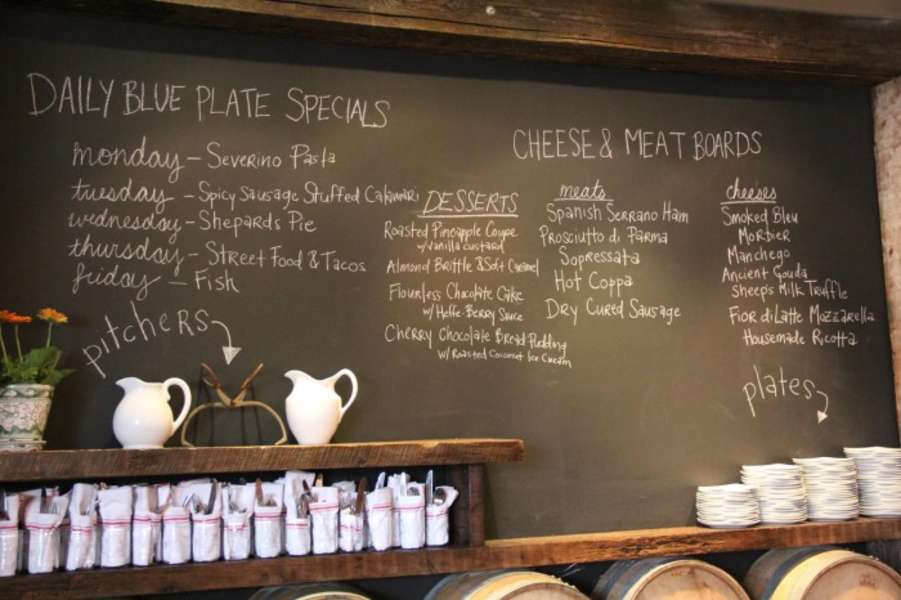 DAILY BLUE PLATE SPECIALS
monday - Severino Pasta
tuesday - Spicy Sausage Stuffed Calamari
wednesday - Shepards Pie
thursday - Street Food & Tacos
friday - Fish
pitchers
DESSERTS
Roasted Pineapple Coupe
w/vanilla custard
Almond Brittle & Soft Caramel
Flourless Chocolate Cake
w/ Heffe Berry Sauce
Cherry Chocolate Bread Pudding
w/ Roasted Coconut Ice Cream
CHEESE & MEAT BOARDS
meats
Spanish Serrano Ham
Prosciutto di Parma
Sopressata
Hot Coppa
Dry Cured Sausage
cheeses
Smoked Bleu
Morbier
Manchego
Ancient Gouda
Sheep's Milk Truffle
Fior di Latte Mozzarella
Housemade Ricotta
plates